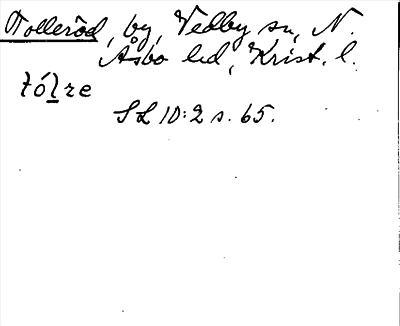 Tolleröd, by, Vedby sn, N.
Åsbo hd, Krist. l.
tólre
SL 10:2 s. 65.